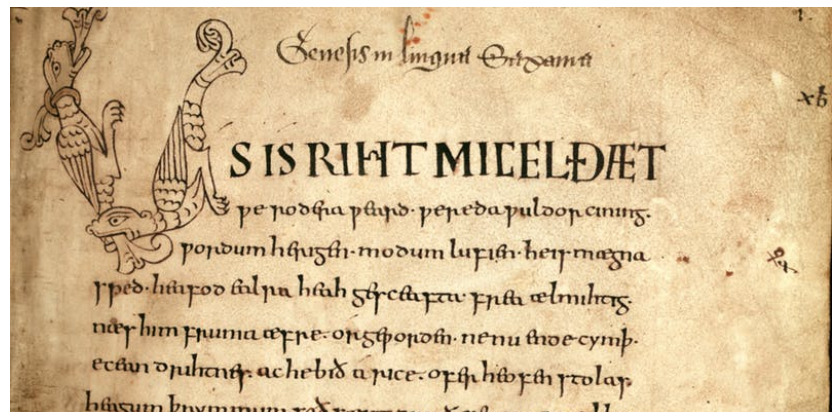 Genesis in lingua Saxania
US IS RIHT MICEL ÐÆT
ƿe rodera ƿeard· ƿereda ƿuldor cining·
ƿordum herigen· modum lufien· he is mægna
sped· heafod ealra heah gesceafta frea ælmihtig·
næs him fruma æfre· or geƿorden· ne nu ende cymþ·
ecean drihtnes· ac he bið a rice· ofer heofen stolas·
heagum þrymmum